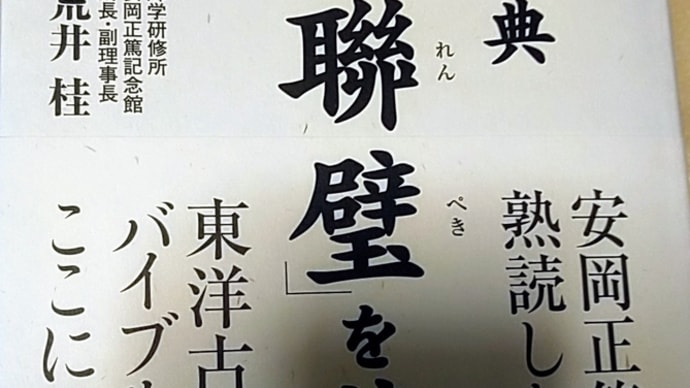 典
聯璧」を
れんぺき
学研修所
安岡正篤記念館
長・副理事長
荒井桂
安岡正篤
熟読し
東洋古
バイブ
ここに